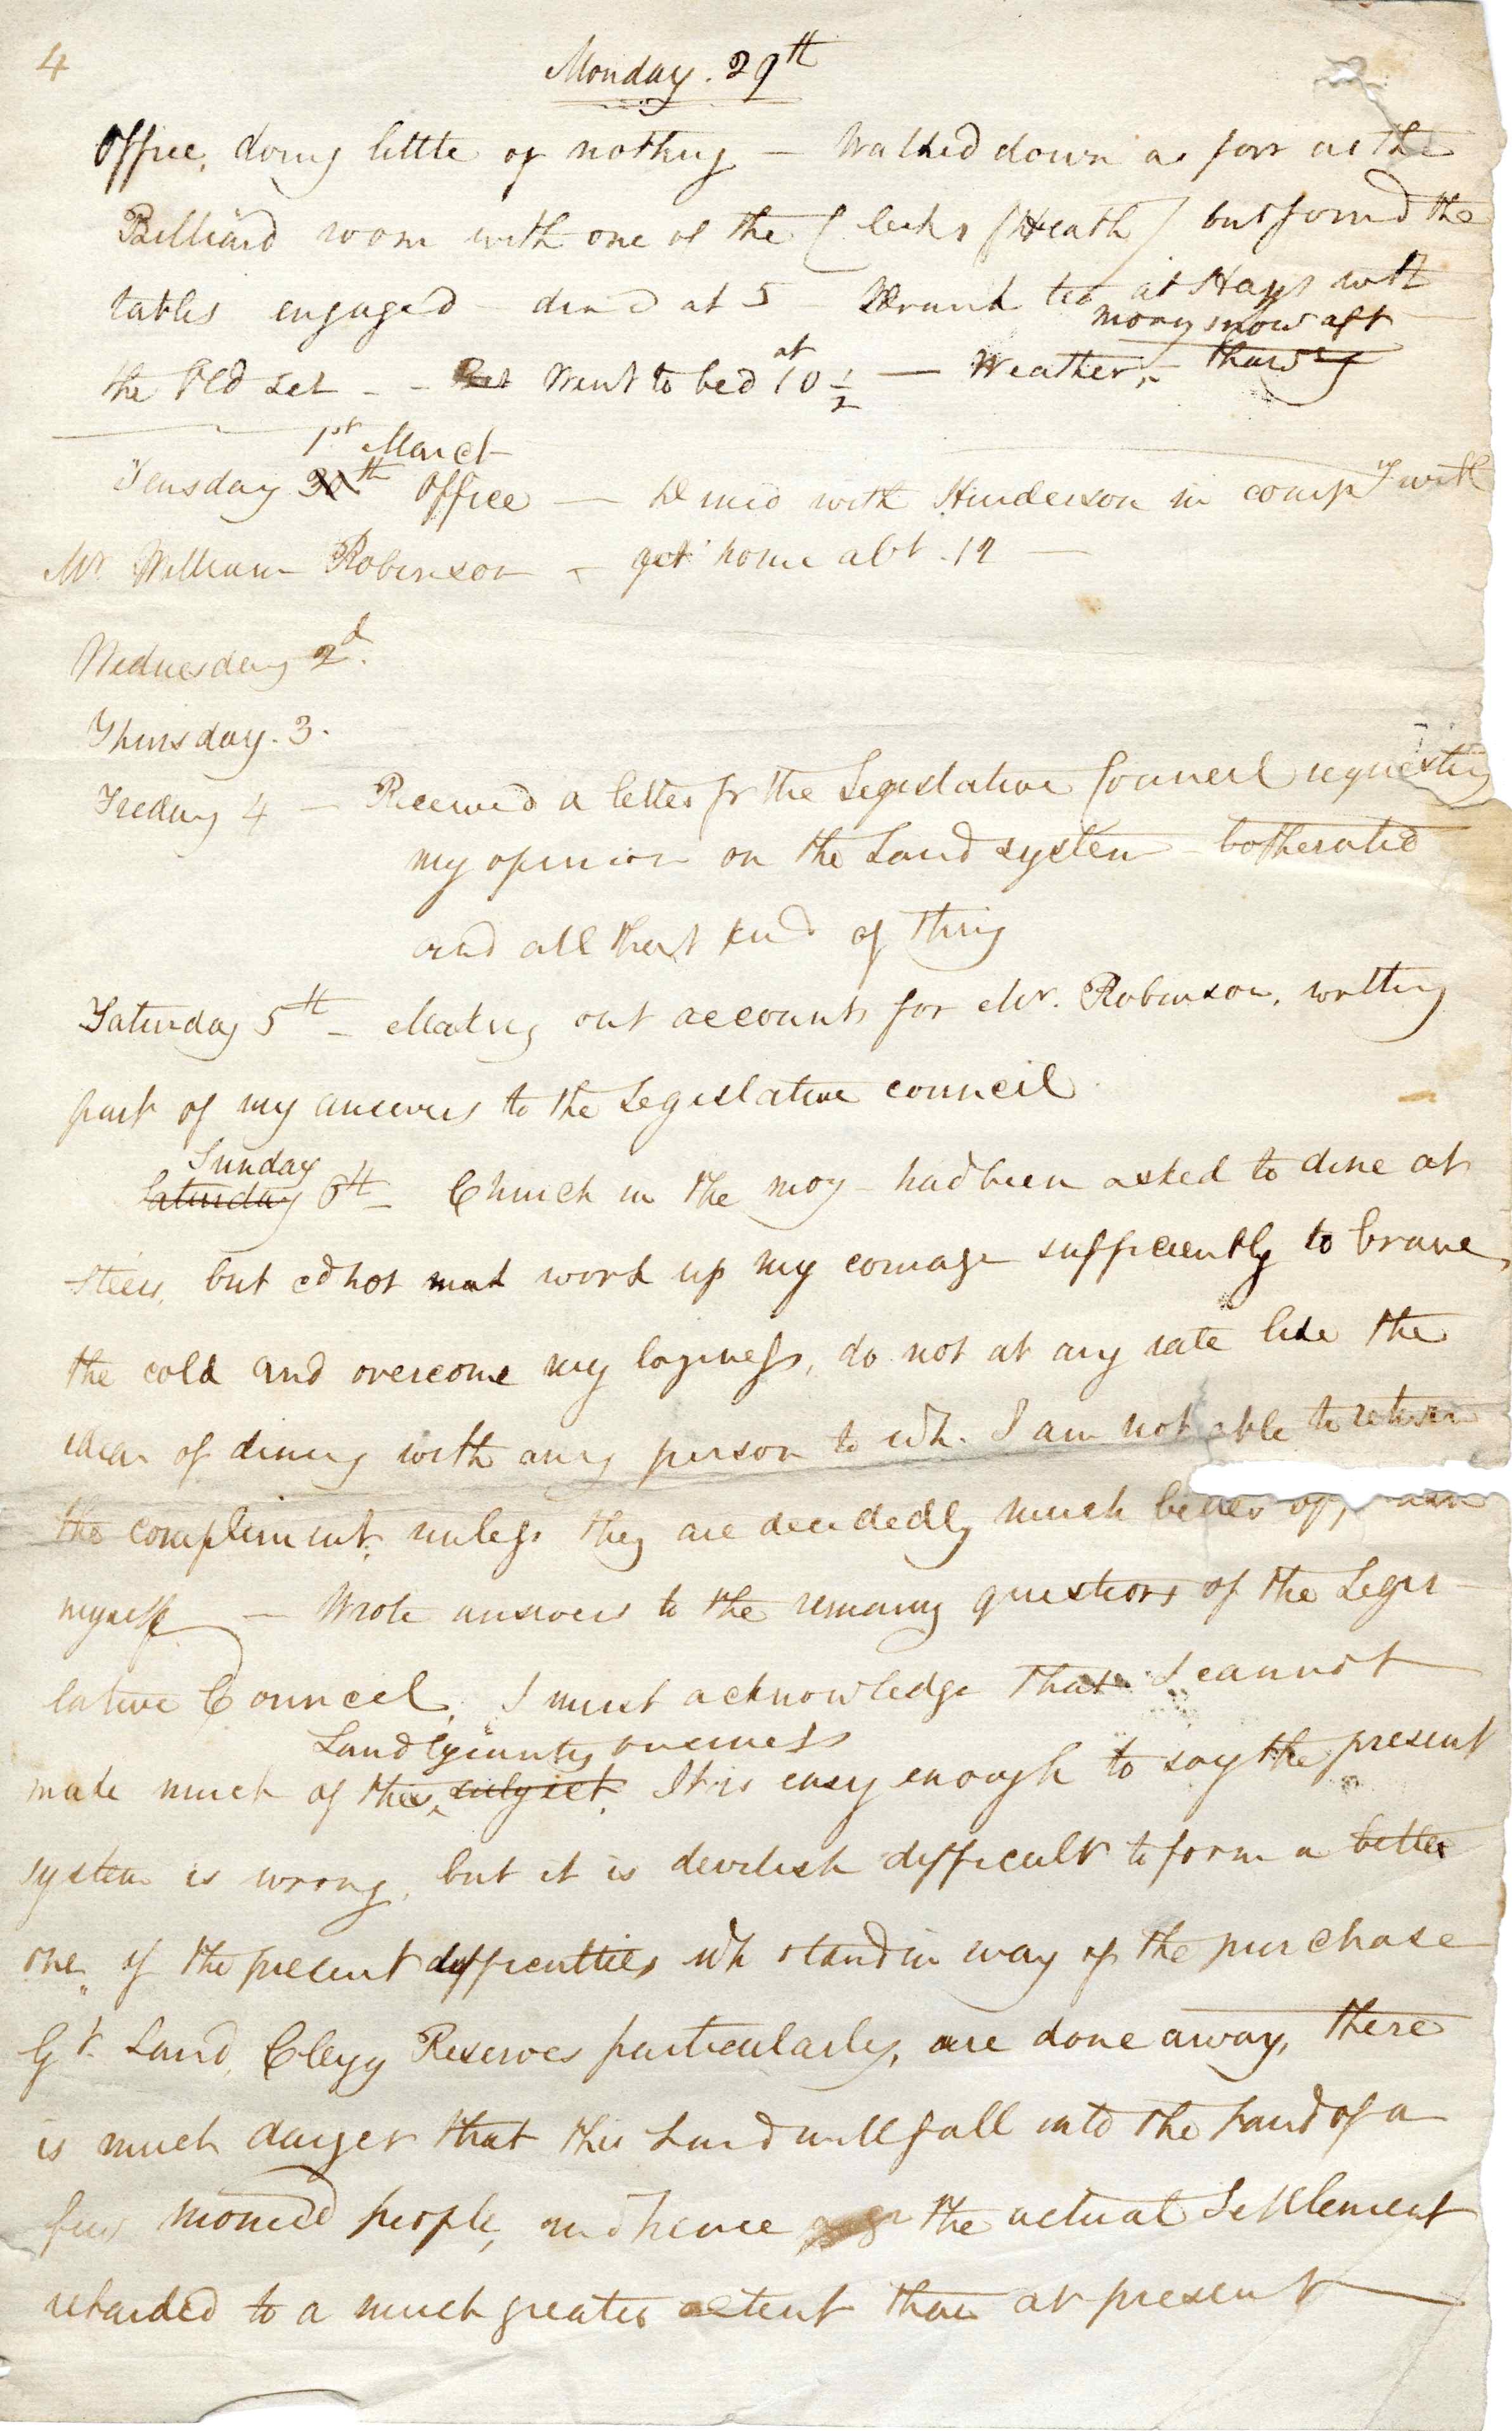 4
Monday. 29th
Office, doing little or nothing — Walked down as farr as the
Billiard room with one of the Clerks (Heath) but found the
tables engaged – dined at 5 Drank tea at Hays with
the Old Set – – Went to bed at 10 1/2 — Weather, – morng snow aft thawg
1st March
Tuesday 30th Office — Dined with Hinderson in compy with
Mr. William Robinson – got home abt. 12 —
Wednesday 2d.
Thursday. 3.
Friday 4 — Received a letter fr the Legislative Council requesting
my opinion on the Land system – botheratio
and all that kind of thing
Saturday 5th – Making out accounts for Mr. Robinson, writting
part of my answers to the Legislative council.
Sunday
Saturday 6th – Church in the mog – had been asked to dine at
but cd not work up my courage sufficiently to brave
the cold and overcome my laziness, do not at any rate like the
idea of dining with any person to wh. I am not able to return
the compliment, unless they are decidedly much better of, than
myself — Wrote answers to the remaing questions of the Legis–
lative Council, I must acknowledge that I cannot
Land
make much of the subject. It is easy enough to say the present
system is wrong, but it is devilish difficult to form a better
one, if the present difficulties wh stand in way of the purchase
Gt. Land, Clergy Reserves particularly, are done away, there
is much danger that this Land will fall into the hand of a
few monied people, and hence the actual Settlement
retarded to a much greater extent than at present —